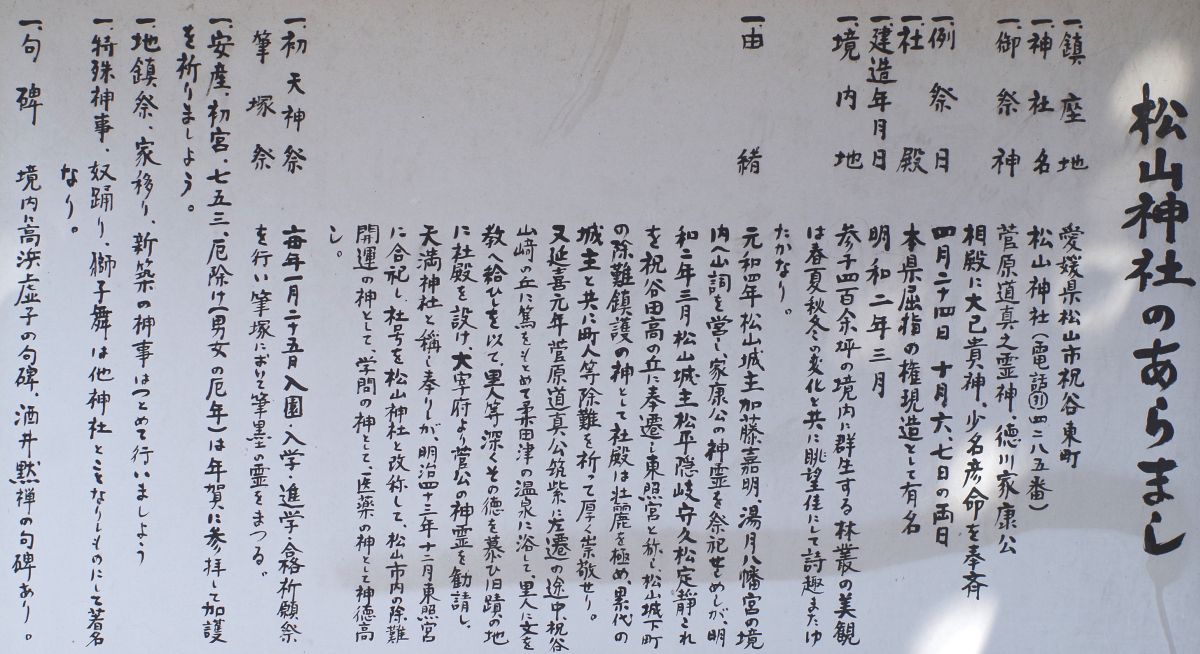 松山神社のあらまし
一、鎮座地 愛媛県松山市祝谷東町
一、神社名 松山神社(電話㊶四二八五番)
一、御祭神 菅原道真之霊神、徳川家康公
相殿に大己貴神、少名彦命を奉斉
一、例祭日 四月二十四日 十月六、七日の両日
一、社殿 本県屈指の権現造として有名
一、建造年月日 明和二年三月
一、境内地 参千四百余坪の境内に群生する林叢の美観
は春夏秋冬の変化と共に眺望佳にして詩趣またゆ
たかなり。
一、由緒 元和四年松山城主加藤嘉明、湯月八幡宮の境
内へ小詞を営し家康公の神霊を祭祀せしめしが、明
和二年三月松山城主松平隠岐守久松定静これ
を祝谷田高の丘に奉遷し東照宮と称し、松山城下町
の除難鎮護の神として社殿は壮麗を極め、累代の
城主と共に町人等除難を祈って厚く崇敬せり。
又延喜元年菅原道真公筑紫に左遷の途中祝谷
山﨑の丘に篤をもとめて柔田津の温泉に浴して、里人に文を
教へ給ひしを以て里人等深くその徳を慕ひ旧蹟の地
に社殿を設け、大宰府より菅公の神霊を勧請し、
天満神社と称し奉りしが、明治四十三年十二月東照宮
に合祀し、社号を松山神社と改称して、松山市内の除難
開運の神として、学問の神として、医薬の神として神徳高
し。
一、初天神祭 毎年一月二十五月入園・入学・進学・合格祈願祭
筆塚祭 を行い筆塚において筆墨の霊をまつる。
一、安産、初宮、七五三、厄除け(男女の厄年)は年賀に参拝して加護
を祈りましょう。
一、地鎮祭、家移り、新築の神事はつとめて行いましよう
一、特殊神事、奴踊り、獅子舞は他神社とことなりしものにして著名
なり。
一、句碑 境内に高浜虚子の句碑、酒井黙禅の句碑あり。